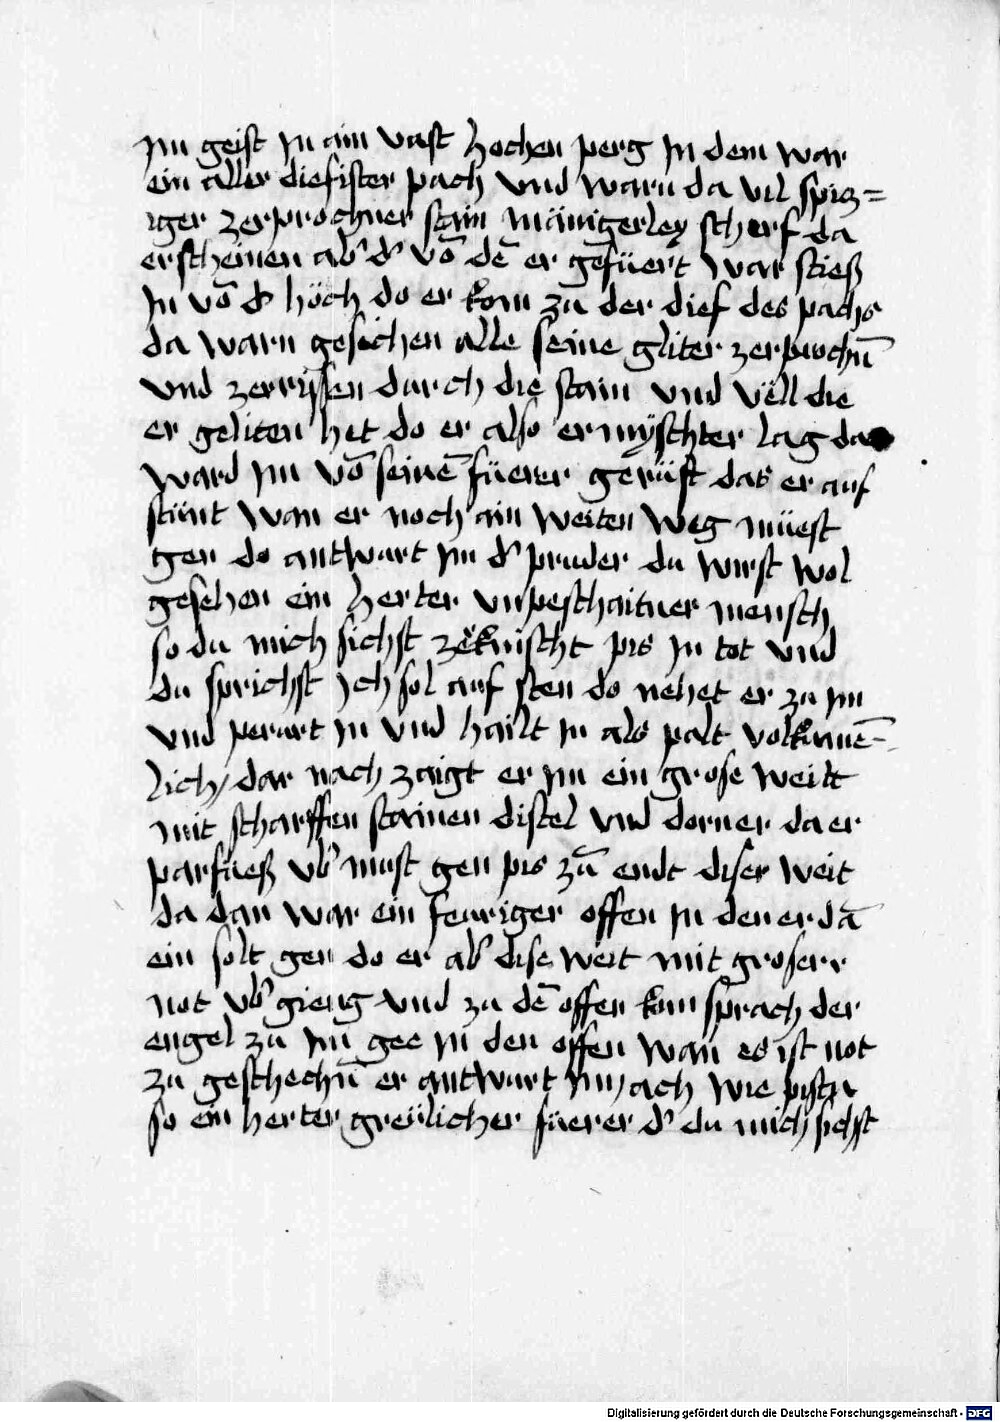 im geist in ain vast hochen perg in dem war
ein aller diefister pach vnd warn da vil spicz=
iger zerprochner stain mänigerley scherf da
erscheinen ab' d' vō dē er gefüert war stieß
in vō d' höch do er kom zu der dief des pachs
da warn gesichen alle seine gliter zerprochn̄
vnd zerryssen durch die stain vnd vëll die
er geliten het do er also ermyschter lag da
ward im vō seinē füerer gerüft das er auf
stünt wan er noch ain weiten weg müest
gen do antwurt im d' pruder du wirst wol
gesehen ein herter vnpeschaitner mensch
so du mich sichst zëknischt pis in tot vnd
du sprichst ich sol auf sten do nehet er zu im
vnd perurt in vnd hailt in als palt volkumē=
lich / dar nach zaigt er im ein grose weitt
mit scharffen stainen distel vnd dorner da er
parfüeß vb' must gen pis zū endt diser weit
da dan war ein feuriger offen in den er dā
ein solt gen do er ab' dise weit mit groserr
not vb' gieng vnd zu dē offen kom sprach der
engel zu im gee in den offen wan es ist not
zu geschechn̄ er antwurt im / ach wie pistu
so ein herter greülicher füerer d' du mich sichst
Digitalisierung gefördert durch die Deutsche Forschungsgemeinschaft - DFG